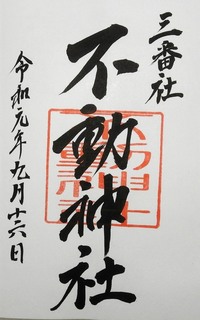 三番社
不動神社
令和元年九月十六日